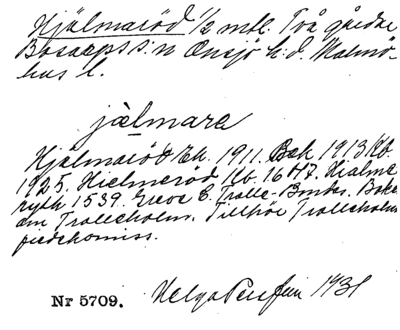 Hjälmaröd 1/2 mtl. Två gårdar
Bosarps s:n Onsjö h:d. Malmö-
hus l.
jälmara
Hjälmaröd Ek. 1911. Bek 1913 Kb.
1925. Hielmeröd Kb. 1647. Hialme
ryth 1539. E. Trolle-Bondes. Boke
om Trolleholm. Tillhör Trolleholms
fideikomiss.
Nr 5709. Helga 1931